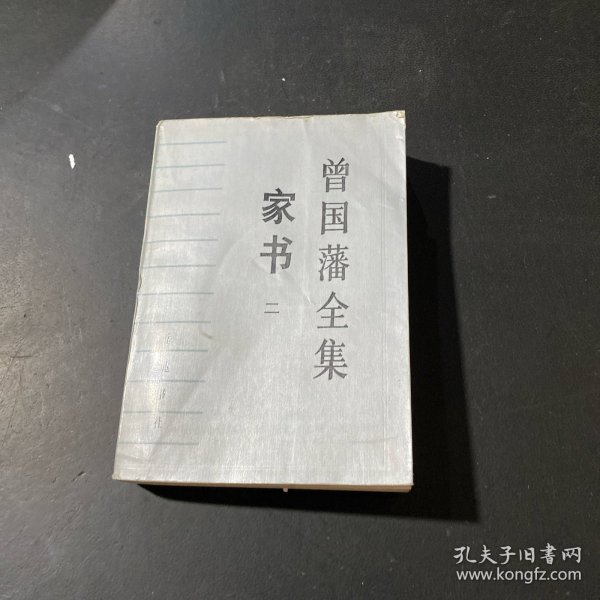 曾国藩全集
家书
二
孔夫子旧書网
www.kongfz.com